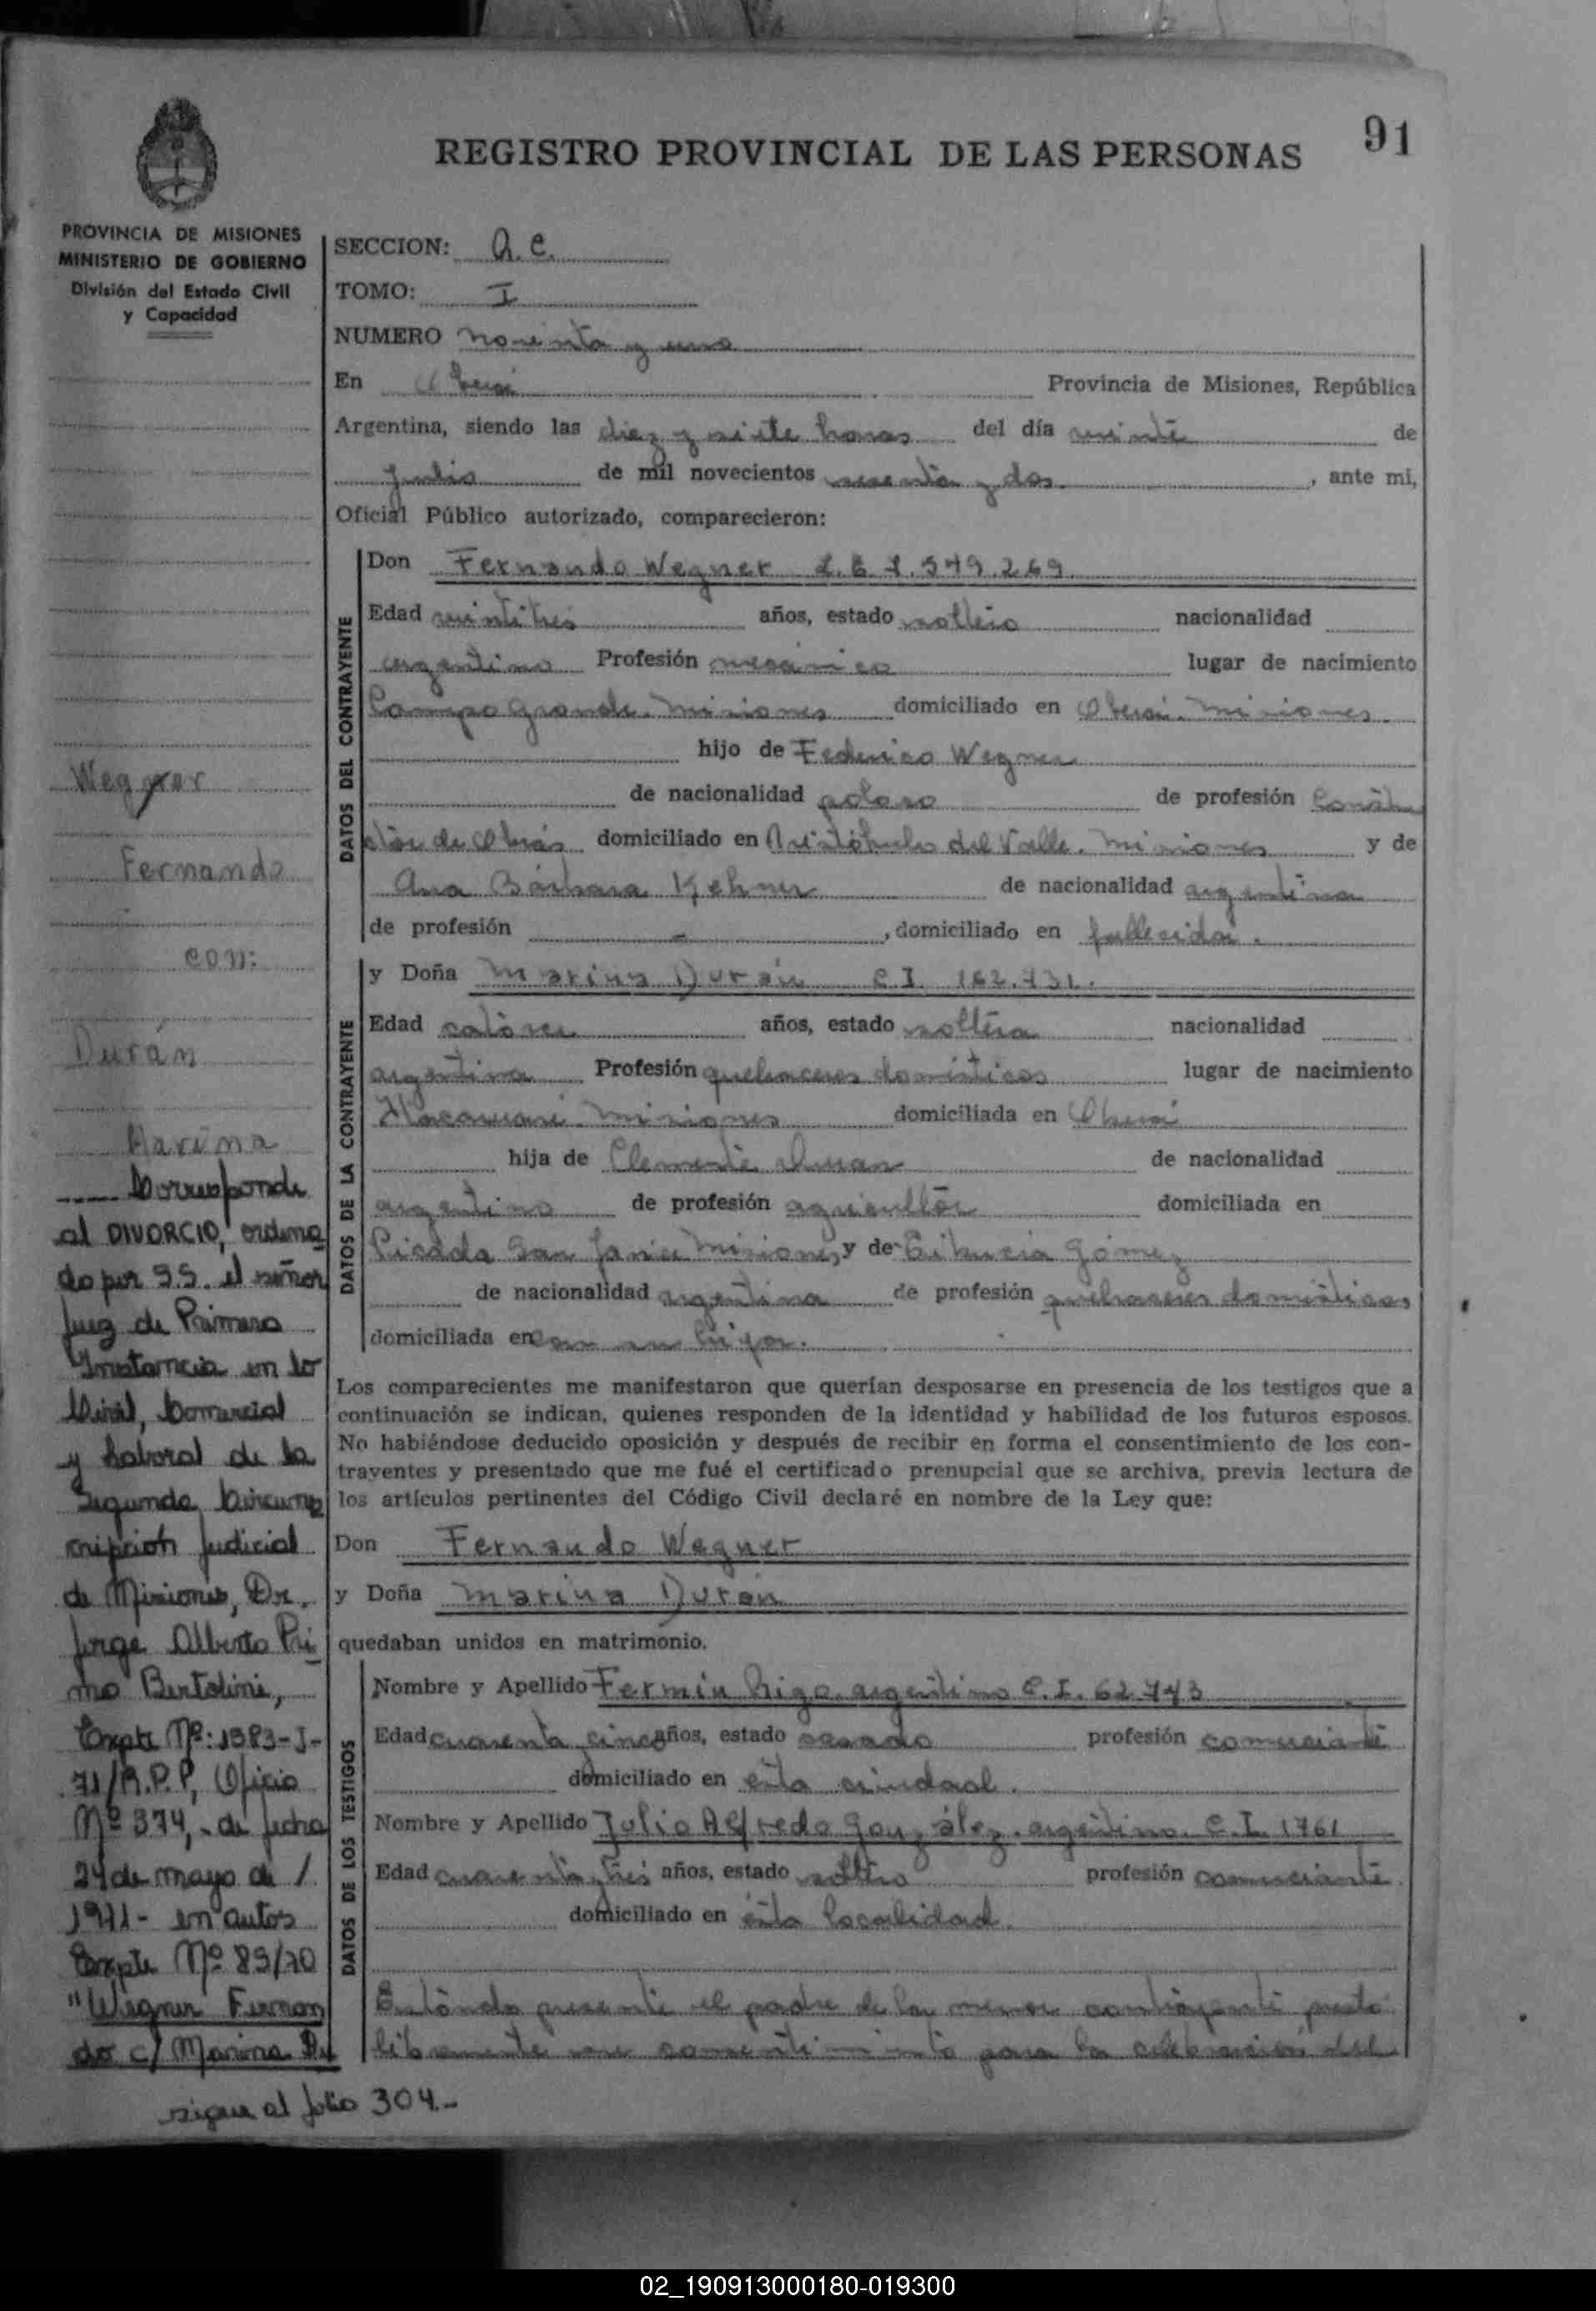 91
REGISTRO PROVINCIAL DE LAS PERSONAS
PROVINCIA DE MISIONES
MINISTERIO DE GOBIERNO
División del Estado Civil
y Capacidad
SECCION: A. C.
TOMO: I
NUMERO noventa y uno
En Oberá Provincia de Misiones, República
Argentina, siendo las diez y siete horas del día veinte de
julio de mil novecientos sesenta y dos , ante mi,
Oficial Público autorizado, comparecieron:
DATOS DEL CONTRAYENTE
Don Fernando Wegner L.E. 7.549.269
Edad veintitres años, estado soltero nacionalidad
argentino Profesión mecánico lugar de nacimiento
Campo Grande. Misiones domiciliado en Oberá. Misiones.
hijo de Federico Wegner
de nacionalidad polaco de profesión Constru
ctor de Obras domiciliado en Aristóbulo del Valle. Misiones y de
Ana Bárbara de nacionalidad argentina
de profesión - , domiciliado en fallecida.
DATOS DE LA CONTRAYENTE
y Doña Marina Durán C.I. 162.731.
Edad catorce años, estado soltera nacionalidad
argentina Profesión quehaceres domésticos lugar de nacimiento
Itacaruaré. Misiones domiciliada en Oberá
hija de Clemente Duran de nacionalidad
argentino de profesión agricultor domiciliada en
Picada San Javier Misiones, y de Gómez
de nacionalidad argentina de profesión quehaceres domésticos
domiciliada en con su hija.
Los comparecientes me manifestaron que querían desposarse en presencia de los testigos que a
continuación se indican, quienes responden de la identidad y habilidad de los futuros esposos.
No habiéndose deducido oposición y después de recibir en forma el consentimiento de los con-
trayentes y presentado que me fué el certificado prenupcial que se archiva, previa lectura de
los artículos pertinentes del Código Civil declaré en nombre de la Ley que:
Don Fernando Wegner
y Doña Marina Durán
quedaban unidos en matrimonio.
DATOS DE LOS TESTIGOS
Nombre y Apellido Fermín Rigo. argentino C.I. 62.743
Edad cuarenta cinco años, estado casado profesión comerciante
domiciliado en esta ciudad.
Nombre y Apellido Julio Alfredo González. argentino. C.I. 1761
Edad cuarenta y tres años, estado soltero profesión comerciante.
domiciliado en esta localidad.
Estando presente el padre de la menor contrayente prestó
libremente su consentimiento para la celebración del
Wegner
Fernando
con:
Durán
Marina
Corresponde
al DIVORCIO, ordena
do por S.S. el señor
Juez de Primera
Instancia en lo
Civil, Comercial
y Laboral de la
Segunda Circuns
cripción Judicial
de Misiones, Dr.
Jorge Alberto Pri
mo Bertolini,
Expte Nº: 1983-J-
71/R.P.P, Oficio
Nº 374,- de fecha
24 de mayo de
1971- en autos
Expte Nº 89/70
"Wegner Fernan
do c/ Marina Du
sigue al folio 304.-
02_190913000180-019300